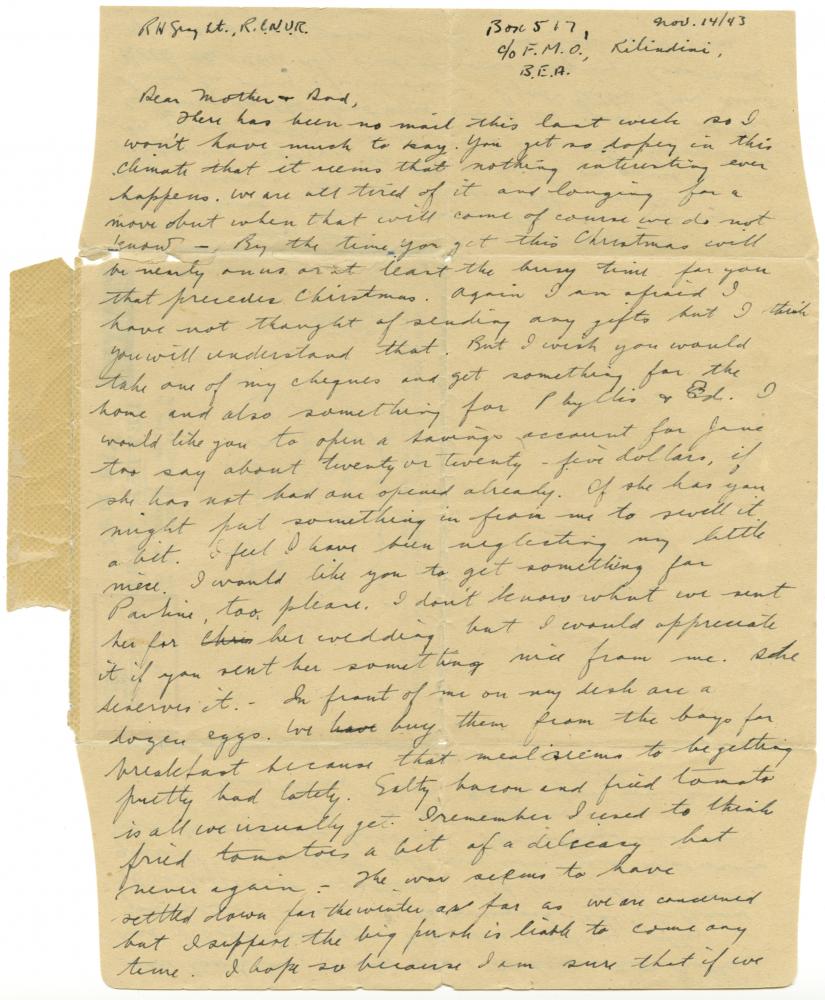 RH Gray Lt., R.C.N.V.R.
Box 517, Nov. 14/43
c/o F.M.O., Kilindini,
B.E.A.
Dear Mother & Dad,
There has been no mail this last week so I
won't have much to say. You get so dopey in this
climate that it seems that nothing interesting ever
happens. We are all tired of it and longing for a
move but when that will come of course we do not
know –. By the time you get this Christmas will
be nearly on us or at least the busy time for you
that precedes Christmas. Again I am afraid I
have not thought of sending any gifts but I think
you will understand that. But I wish you would
take one of my cheques and get something for the
home and also something for Phyllis & Ed. I
would like you to open a savings account for Jane
too say about twenty or twenty-five dollars, if
she has not had one opened already. If she has you
might put something in from me to swell it
a bit. I feel I have been neglecting my little
niece. I would like you to get something for
Pauline, too, please. I don't know what we sent
her for Chris her wedding but I would appreciate
it if you sent her something nice from me. She
deserves it. – In front of me on my desk are a
dozen eggs. We have buy them from the boys for
breakfast because that meal seems to be getting
pretty bad lately. Salty bacon and fried tomato
is all we usually get. I remember I used to think
fried tomatoes a bit of a delicacy but
never again. – The war seems to have
settled down for the winter as far as we are concerned
but I suppose the big push is liable to come any
time. I hope so because I am sure that if we